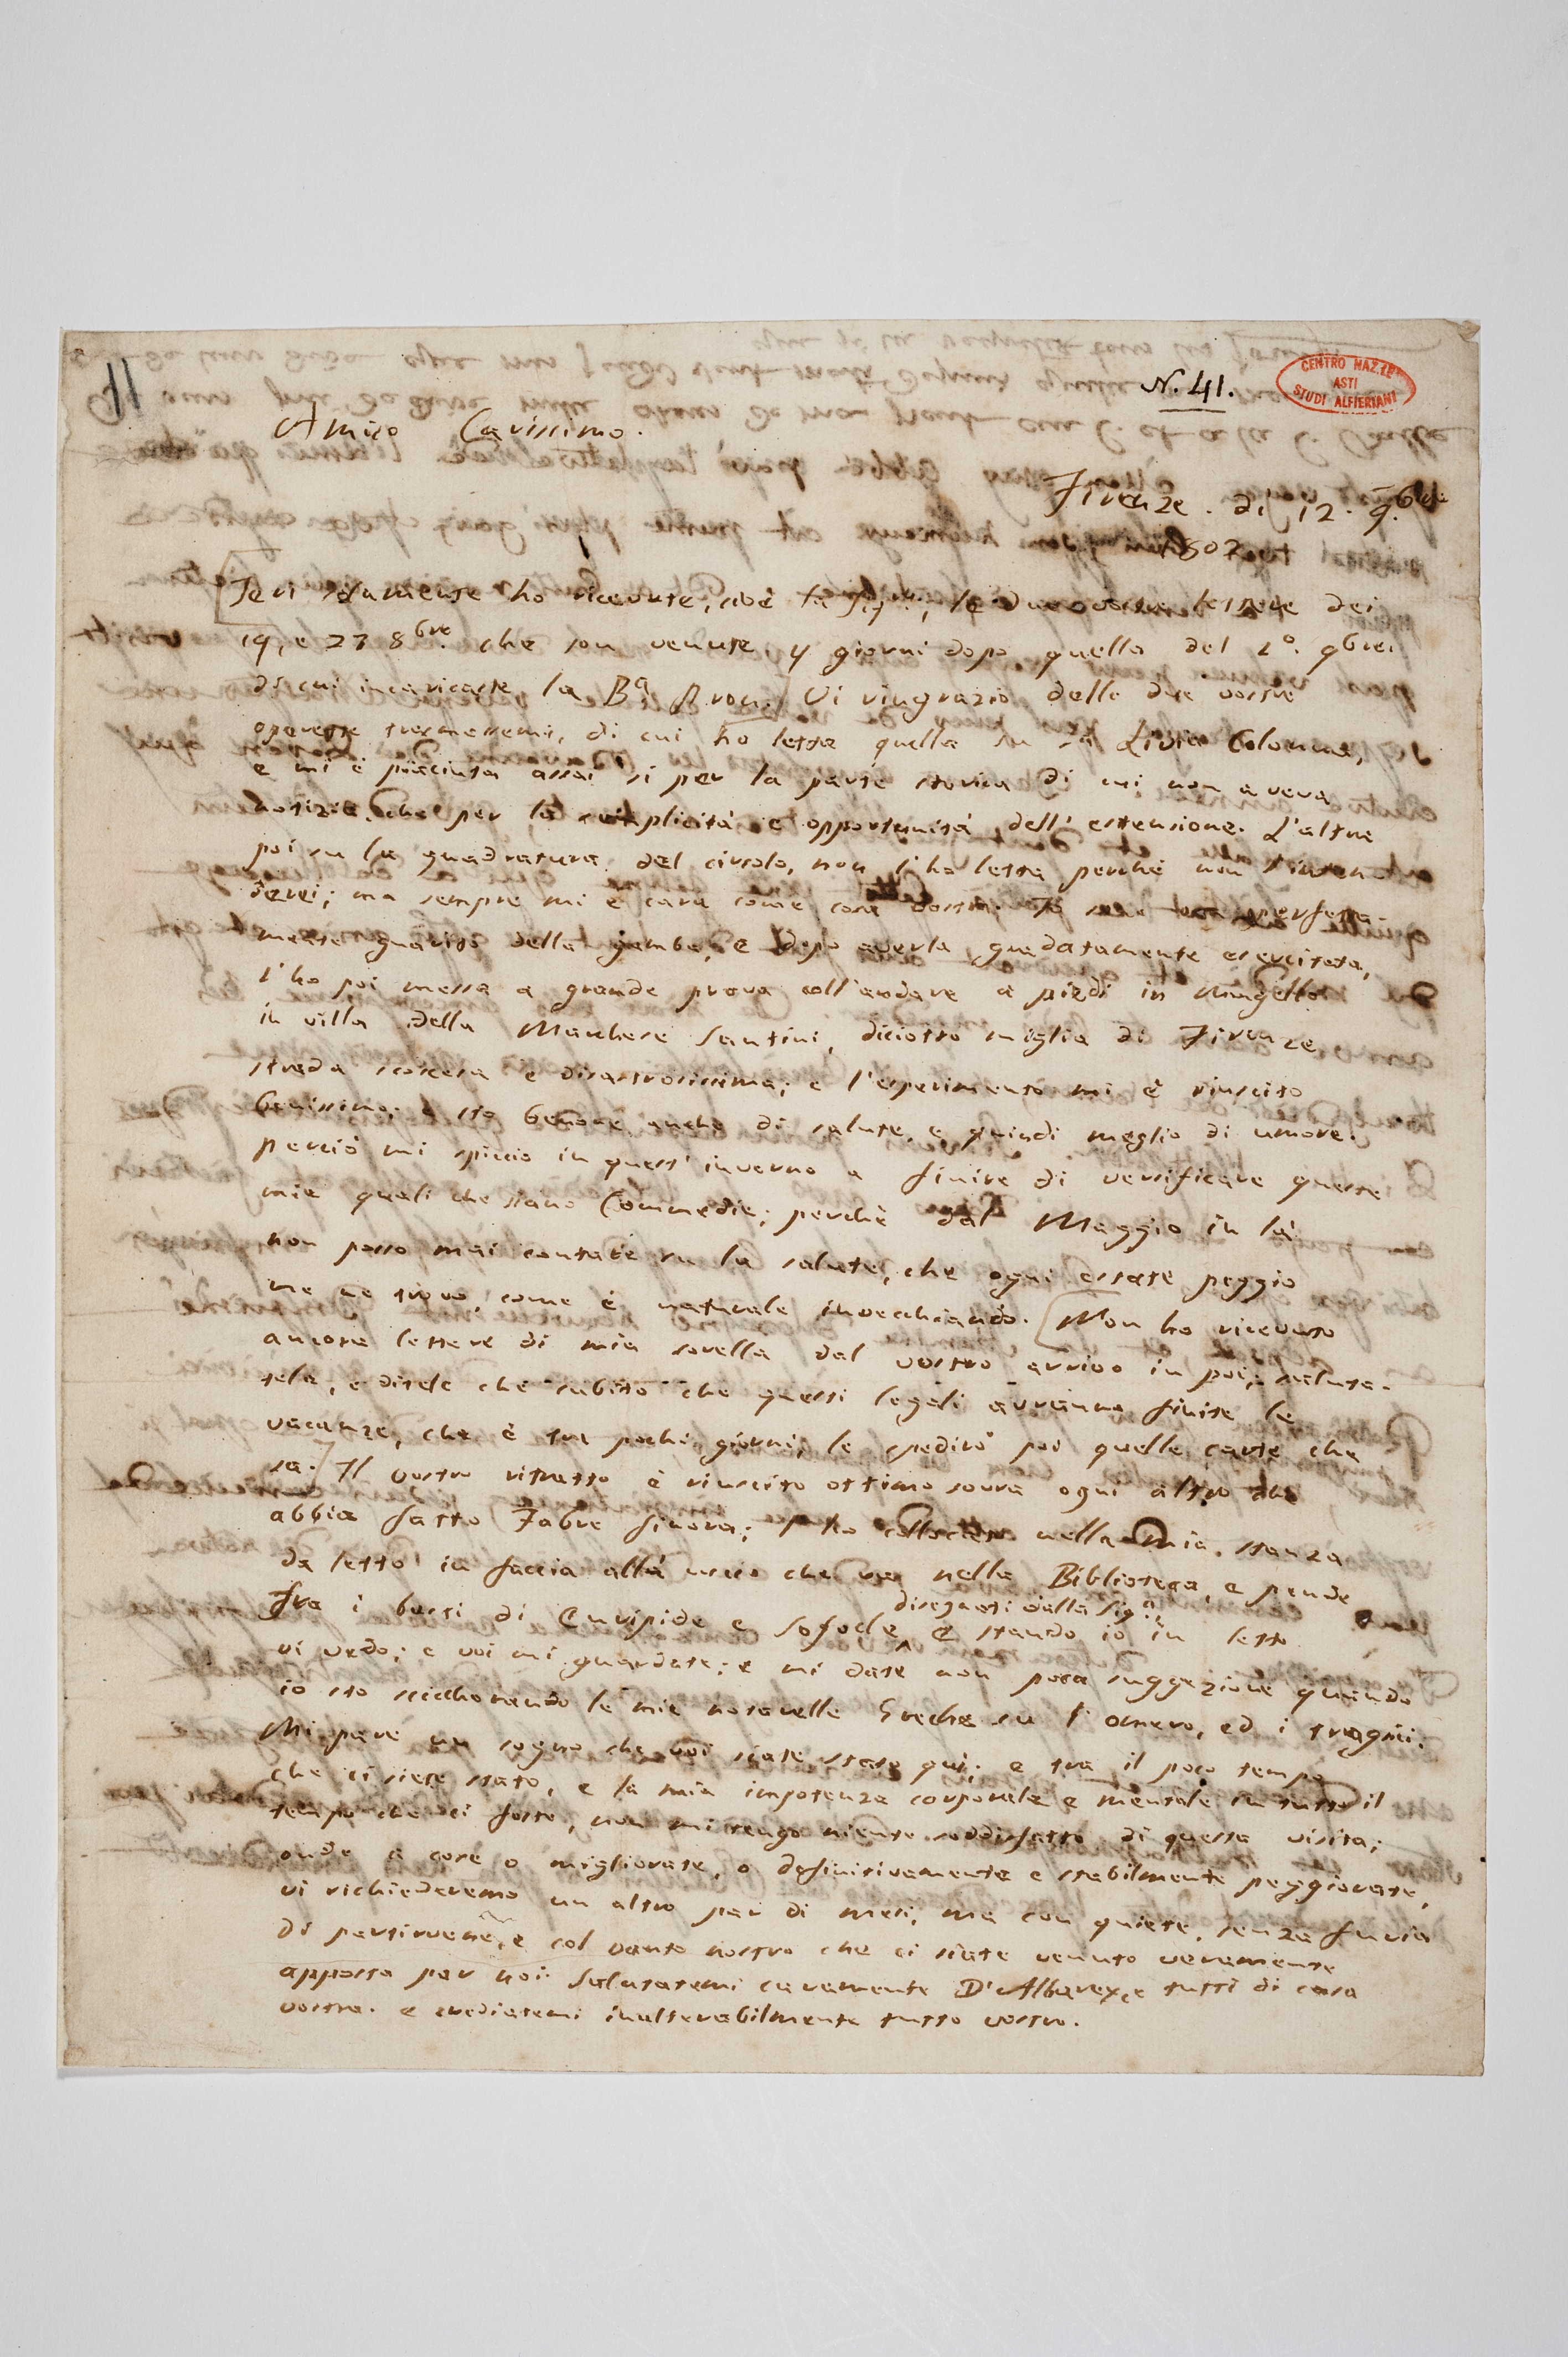 N. 41.
CENTRO NAZ.LE
ASTI
STUDI ALFIERIANI
11
Amico Carissimo.
Firenze. dì 12. 9.bre
1802.
Jeri solamente ho ricevute, cioè la Sig.ra, le due vostre lettere dei
19, e 23 8bre. che son venute 4 giorni dopo quella del 1º. 9bre.
di cui incaricaste la Ba Vi ringrazio delle due vostre
operette trasmessemi, di cui ho letta quella su la Livia Colonna,
e mi è piaciuta assai sì per la parte storica di cui non aveva
notizie, che per la semplicità e opportunità dell' estensione. L'altra
poi su la quadratura del circolo, non l'ho letta perchè non l'inten-
derei; ma sempre mi è cara come cosa vostra. Io son perfetta-
mente guarito della gamba, e dopo averla gradatamente esercitata,
l'ho poi messa a grande prova coll'andare a piedi in Mugello
in villa della Marchese Santini, diciotto miglia di Firenze,
strada scoscesa e disastrosissima; e l'esperimento mi è riuscito
benissimo; e sto benone anche di salute, e quindi meglio di umore.
perciò mi spiccio in quest' inverno a finire di versificare queste
mie quali che siano Commedie; perchè dal Maggio in là
non posso mai contare su la salute, che ogni estate peggio
me ne trovo, come è naturale invecchiando. [Non ho ricevuto
ancora lettere di mia sorella dal vostro arrivo in poi; saluta-
tela, e ditele che subito che questi legali avranno finite le
vacanze, che è tra pochi giorni, le spedirò poi quelle carte che
sa.] Il vostro ritratto è riuscito ottimo sovra ogni altro che
abbia fatto Fabre finora; l'ho collocato nella mia stanza
da letto in faccia all'uscio che va nella Biblioteca, e pende
fra i busti di Euripide e Sofocle
disegnati dalla Sig.a;
E stando io in letto
vi vedo; e voi mi guardate; e mi date non poca suggezione quando
io sto scicchonando le mie noterelle Greche su l'omero, ed i tragici.
Mi pare un sogno che voi siate stato qui; e tra il poco tempo
che ci siete stato, e la mia impotenza corporale e mentale in tutto il
tempo che ci foste, non mi tengo niente soddisfatto di questa visita;
onde a cose o migliorate, o definitivamente e stabilmente peggiorate,
vi richiederemo un altro par di mesi, ma con quiete, senza furia
di partirvene, e col vanto nostro che ci siate venuto veramente
apposta per noi. Salutatemi caramente D'Albarey, e tutti di casa
vostra. e crediatemi inalterabilmente tutto vostro.